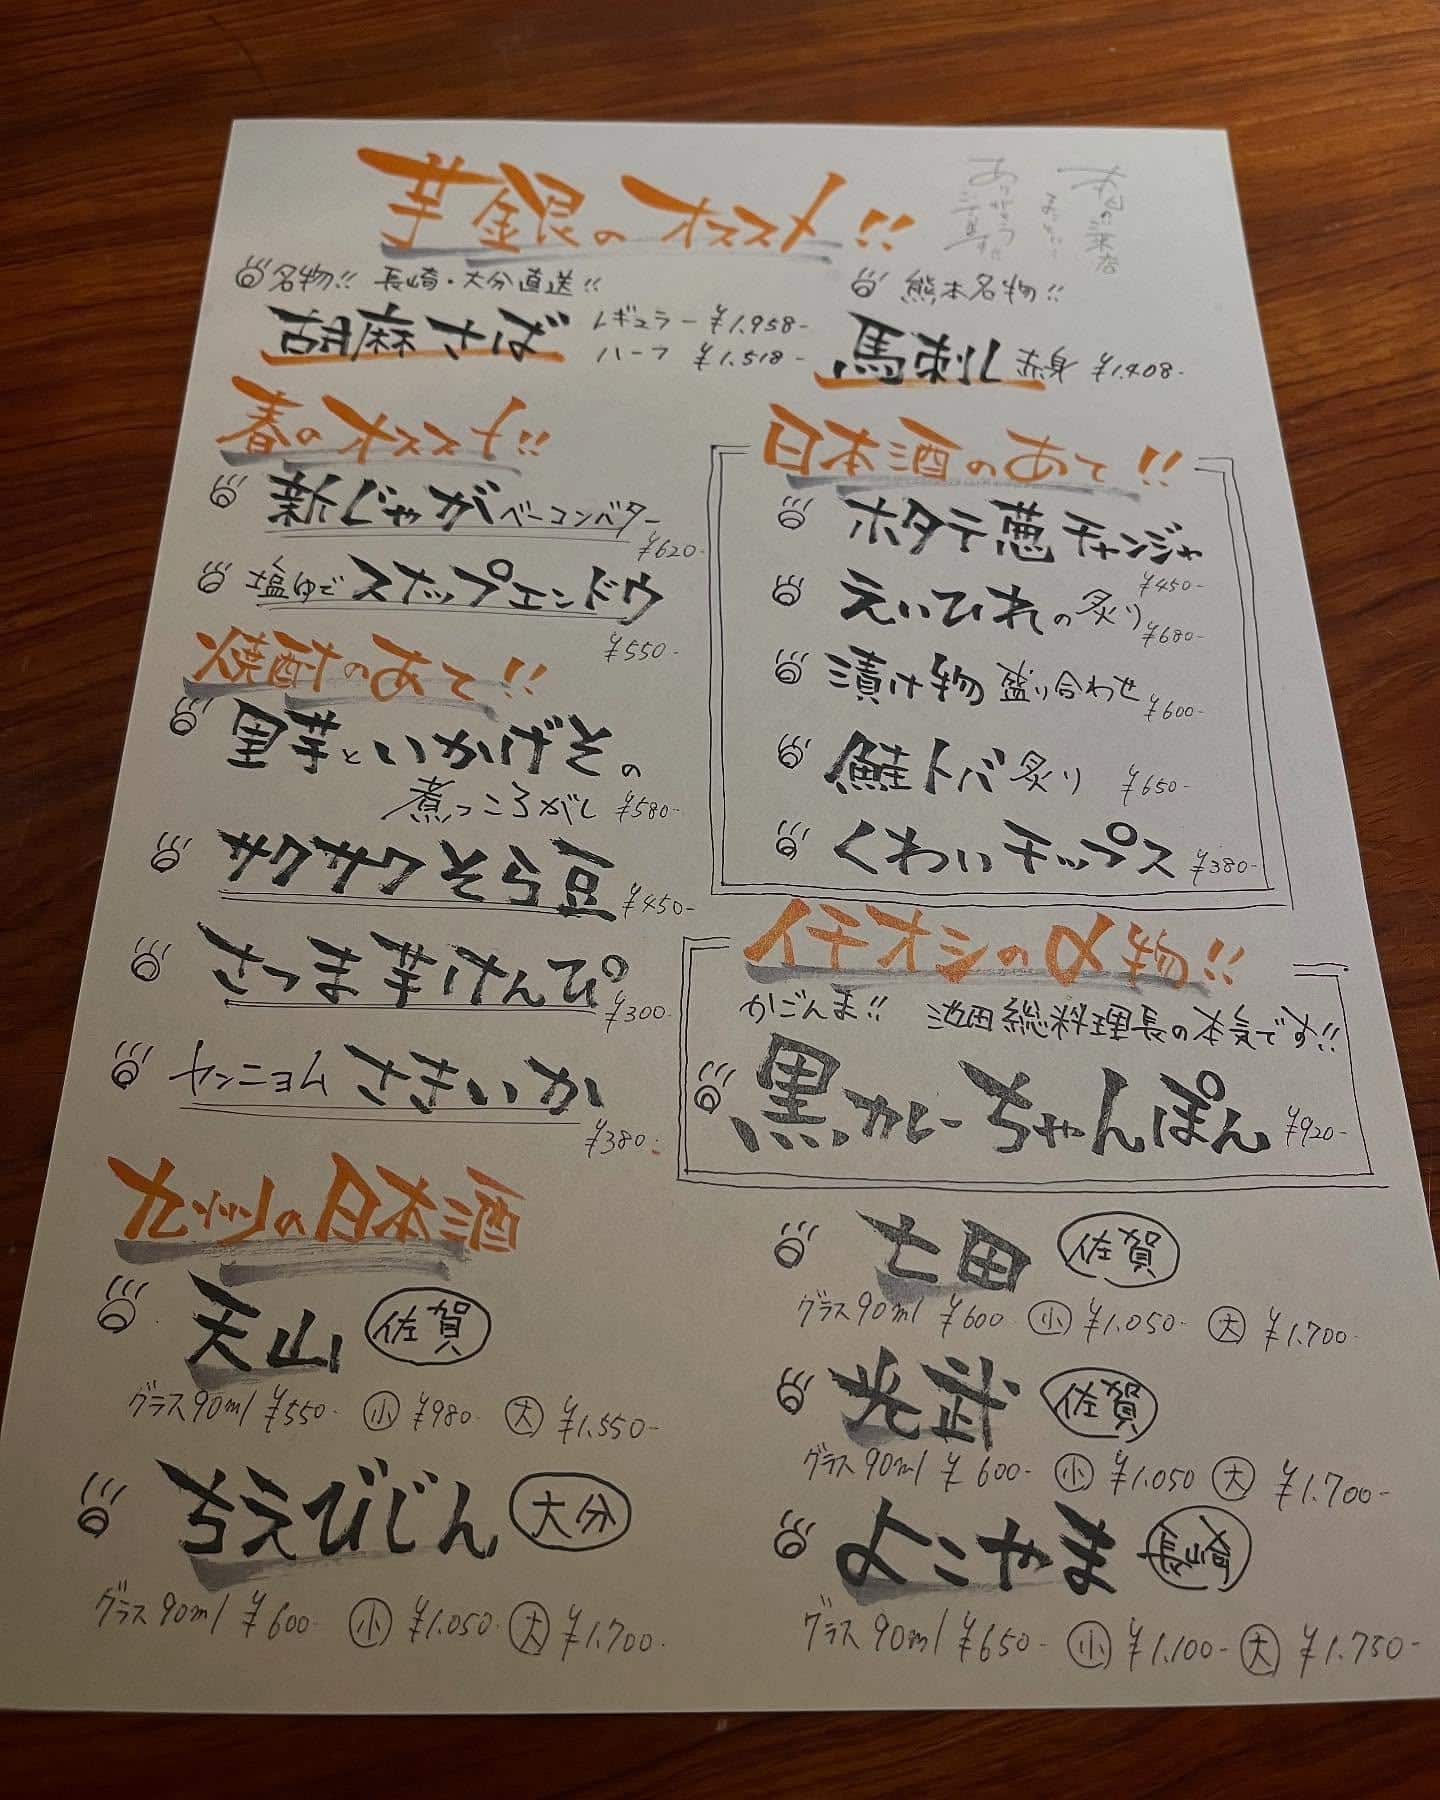 芋銀のオススメ!!
本日の来店
まことに
ありがとう
ございます
名物!! 長崎・大分直送!!
胡麻さば レギュラー ¥1.958-
ハーフ ¥1.518-
熊本名物!!
馬刺し 赤身 ¥1.408-
春のオススメ!!
新じゃがベーコンバター
¥620-
塩ゆでスナップエンドウ
¥550-
焼酎のあて!!
里芋といかげその
煮っころがし ¥580-
サクサクそら豆 ¥450-
さつま芋けんぴ ¥300-
ヤンニョムさきいか
¥380-
日本酒のあて!!
ホタテ葱チャンジャ
¥450-
えいひれの炙り ¥680-
漬け物 盛り合わせ ¥600-
鮭トバ炙り ¥650-
くわいチップス ¥380-
イチオシの〆物!!
かごんま!! 池田総料理長の本気です!!
黒カレーちゃんぽん ¥920-
九州の日本酒
天山 佐賀
グラス90ml ¥550- 小 ¥980- 大 ¥1.550-
ちえびじん 大分
グラス90ml ¥600- 小 ¥1.050- 大 ¥1.700-
七田 佐賀
グラス90ml ¥600 小 ¥1.050- 大 ¥1.700-
光武 佐賀
グラス90ml ¥600- 小 ¥1.050 大 ¥1.700-
よこやま 長崎
グラス90ml ¥650- 小 ¥1.100- 大 ¥1.750-